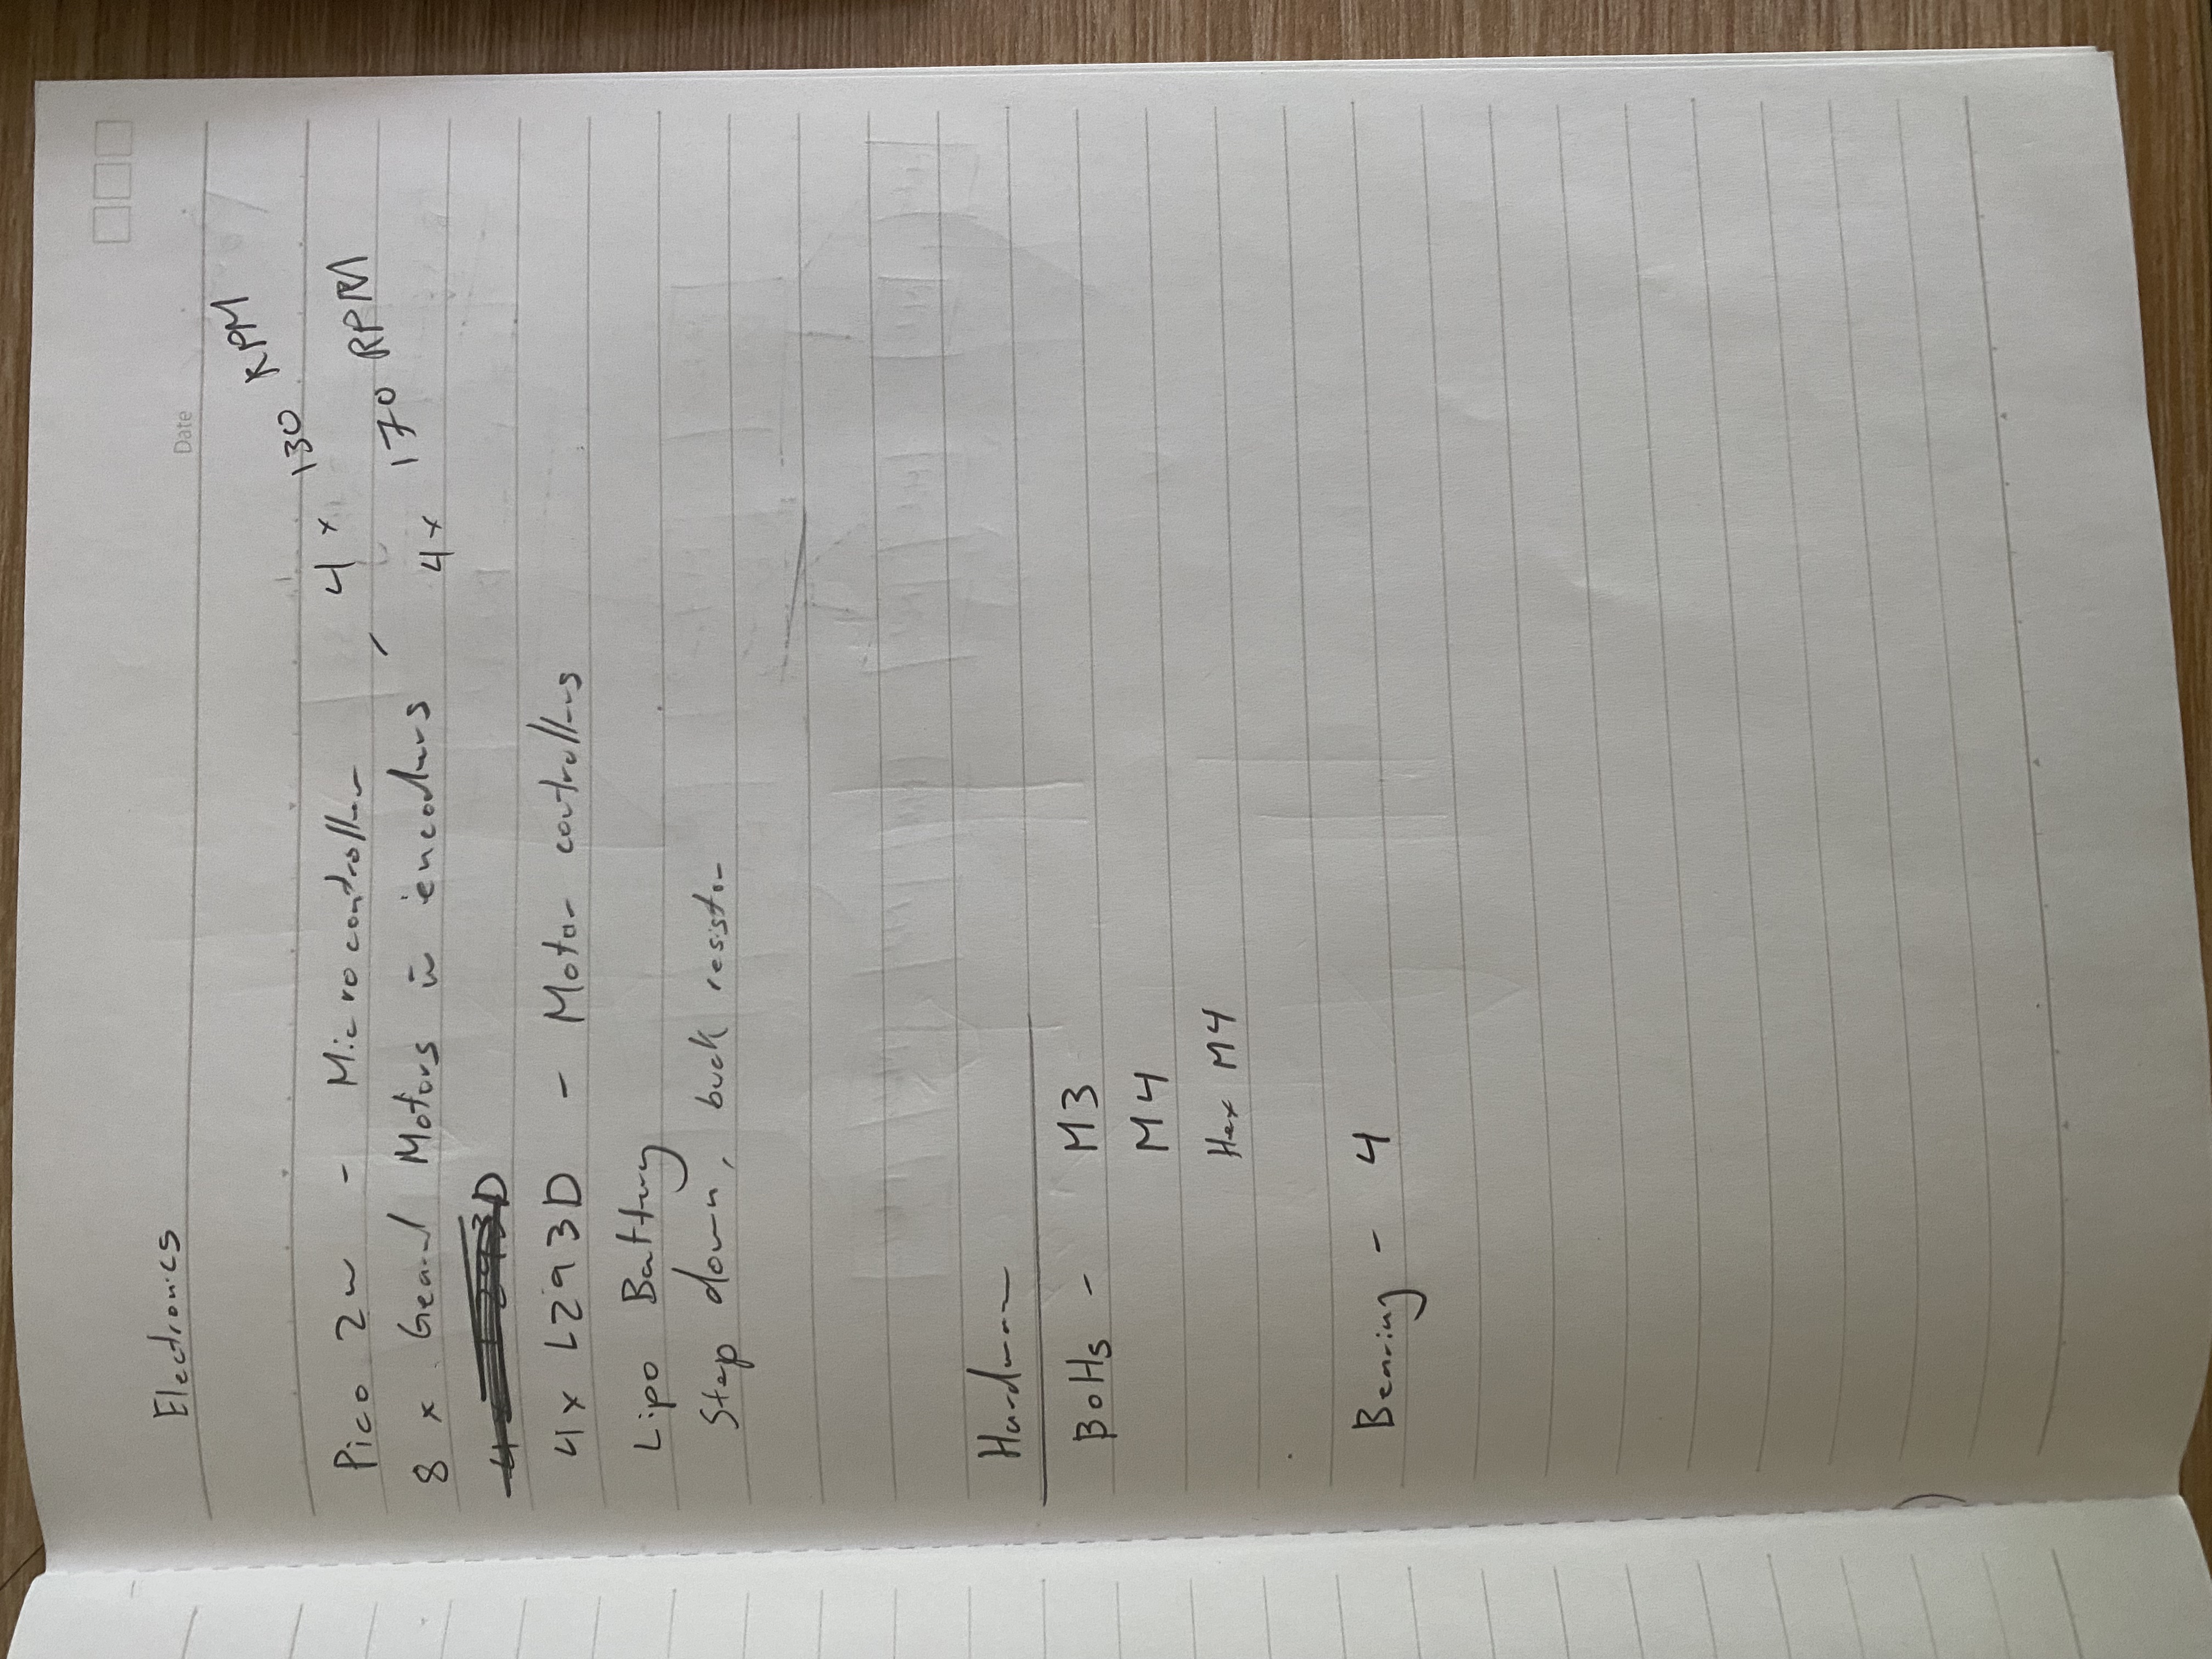 Date
Electronics
Pico 2w - Microcontroller
8 x Geared Motors w encoders, 4 x 130 RPM
4 x 170 RPM
4 x L293D - Motor controllers
Lipo Battery
Step down, buck resistor
Hardware
Bolts - M3
M4
Hex M4
Bearing - 4